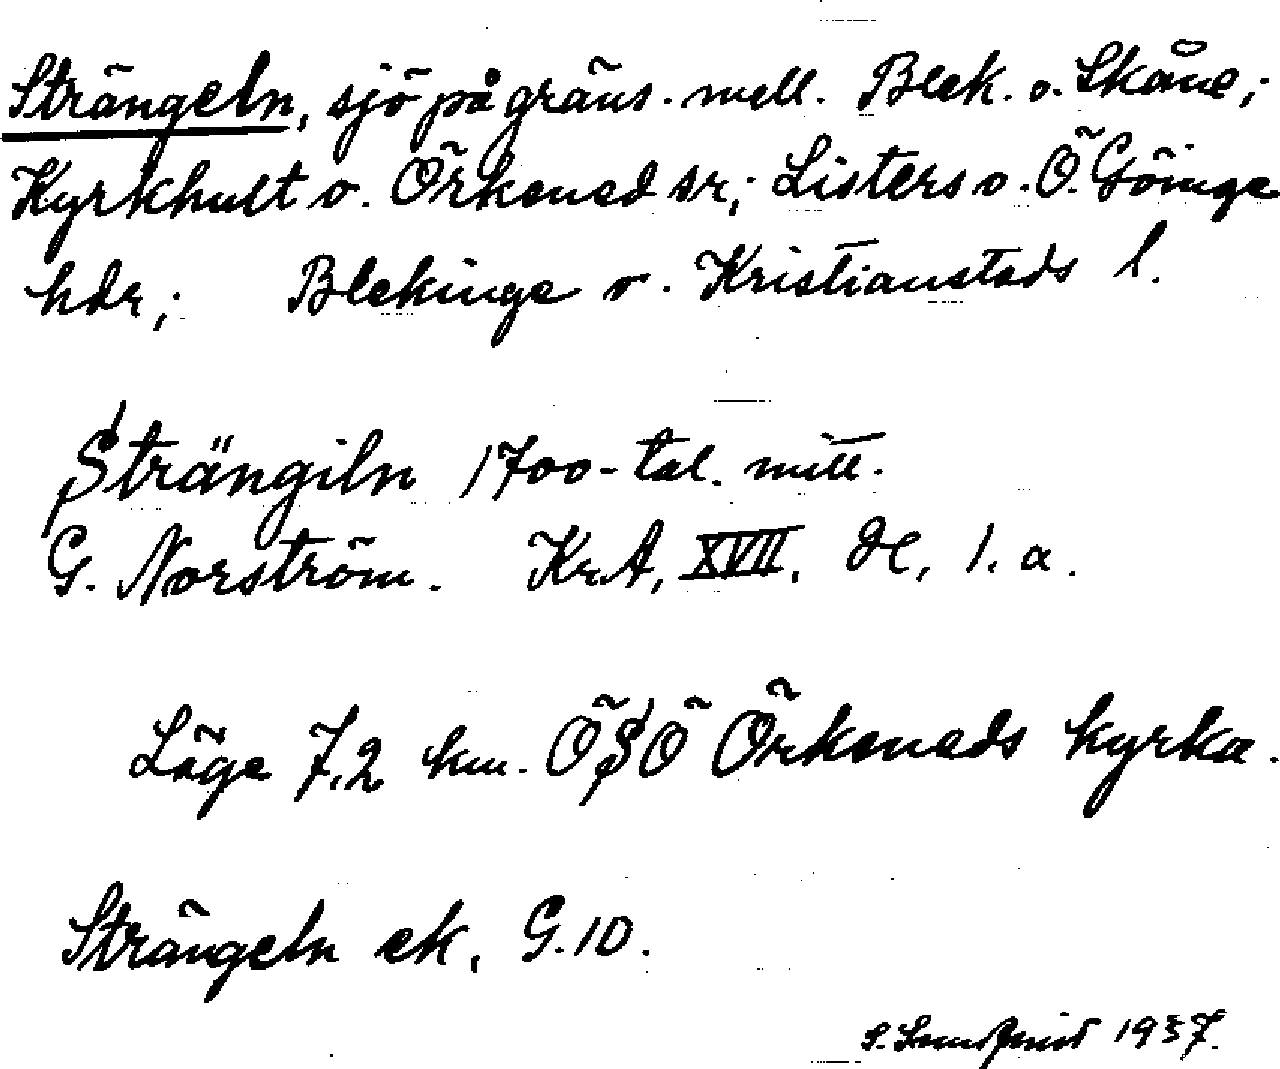 Strängeln, sjö på gräns. mell. Blek. o. Skåne;
Kyrkhult o. Örkened sr; Listers o. Ö. Göinge
hdr; Blekinge o. Kristianstads l.
Strängiln 1700-tal. mitt.
G. Norström. KrA, XVII. H, 1. a.
Läge 7,2 km. ÖSÖ Örkeneds kyrka.
Strängeln ek, G. 10.
S. 1937.